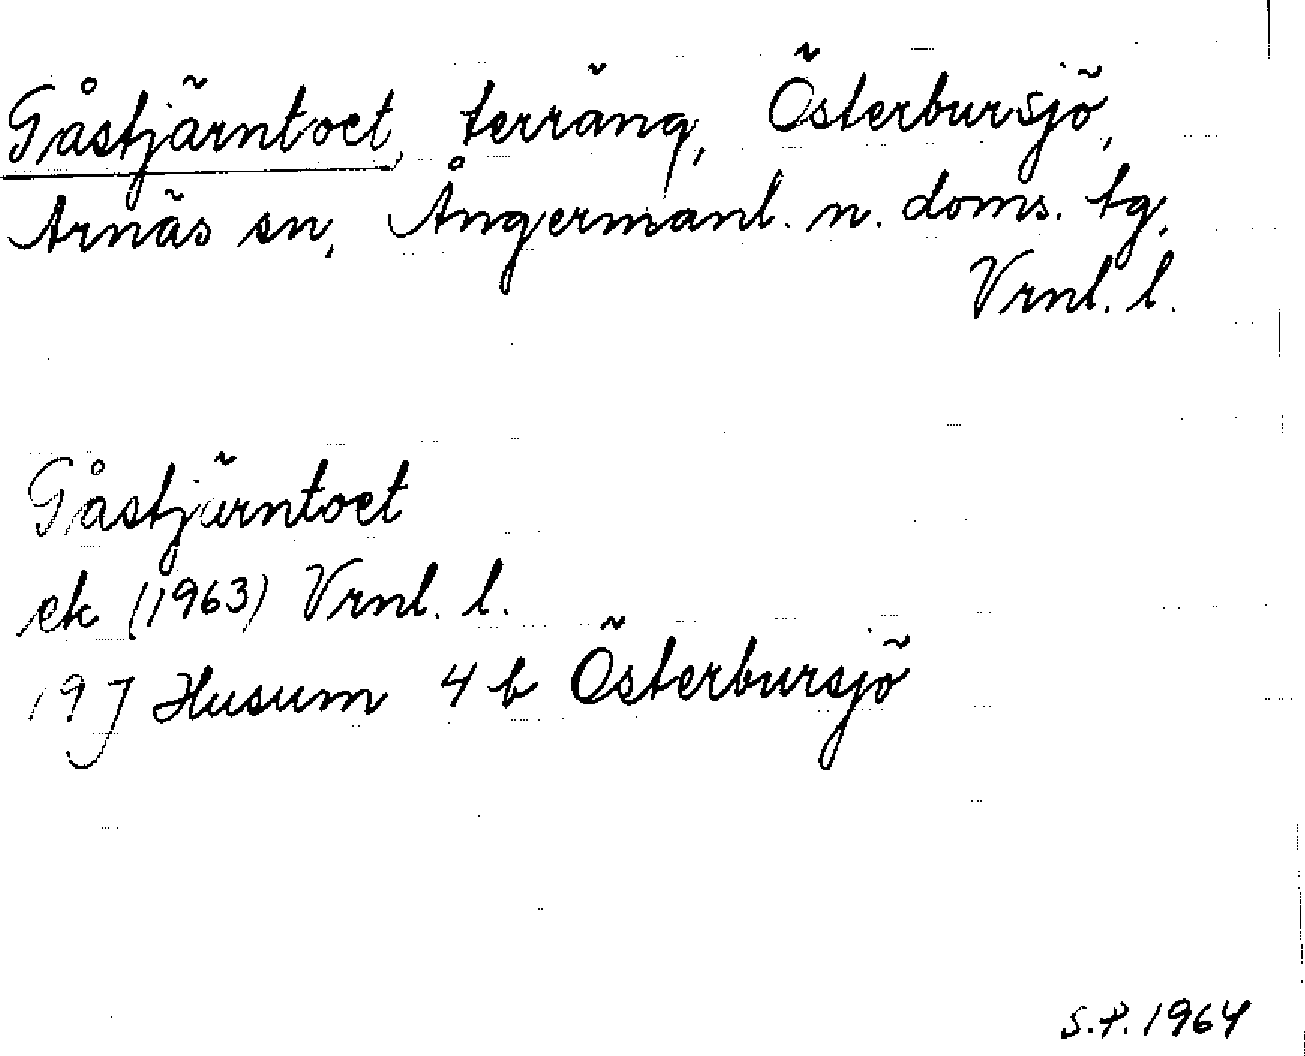 Gåstjärntoet, terräng, Österbursjö,
Arnäs sn, Ångermanl. n. doms. tg,
Vrnl. l.
Gåstjärntoet
ek (1963) Vrnl. l.
19 J Husum 4 b Österbursjö
S.P. 1964